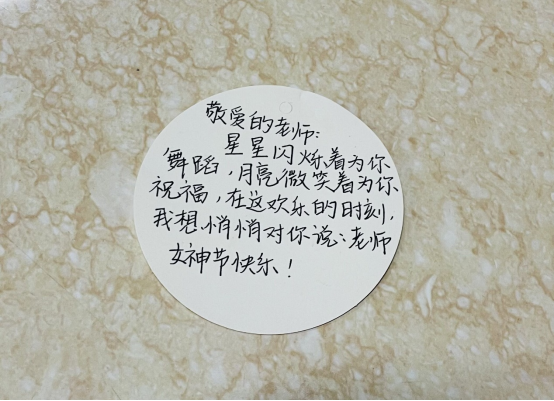 敬爱的老师:
星星闪烁着为你
舞蹈,月亮微笑着为你
祝福,在这欢乐的时刻,
我想悄悄对你说:老师
女神节快乐!